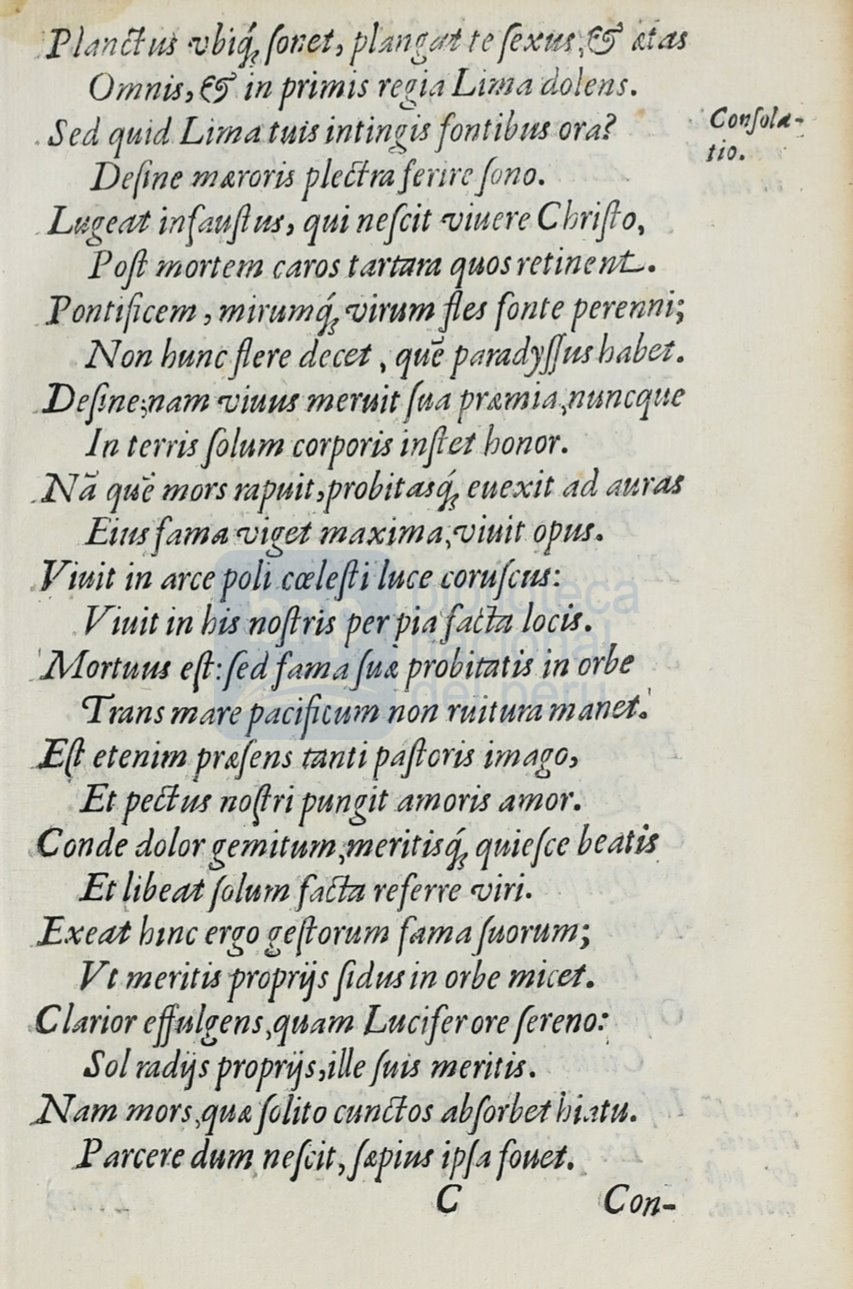 Planctus vbiq́; ſonet, plangat te ſexus, & ætas
Omnis, & in primis regia Lima dolens.
Sed quid Lima tuis intingis fontibus ora?
Conſola-
tio.
Deſine mæroris plectra ferire ſono.
Lugeat infauſtus, qui neſcit viuere Chriſto,
Poſt mortem caros tartara quos retinent.
Pontificem, mirumq́; virum fles fonte perenni;
Non hunc flere decet, quē paradyſſus habet.
Deſine; nam viuus meruit ſua præmia, nuncque
In terris ſolum corporis inſtet honor.
Nā quē mors rapuit, probitasq́; euexit ad auras
Eius fama viget maxima, viuit opus.
Viuit in arce poli cœleſti luce coruſcus:
Viuit in his noſtris per pia facta locis.
Mortuus eſt: ſed fama ſuæ probitatis in orbe
Trans mare pacificum non ruitura manet.
Eſt etenim præſens tanti paſtoris imago,
Et pectus noſtri pungit amoris amor.
Conde dolor gemitum, meritisq́; quieſce beatis
Et libeat ſolum facta referre viri.
Exeat hinc ergo geſtorum fama ſuorum;
Vt meritis proprijs ſidus in orbe micet.
Clarior effulgens, quam Lucifer ore ſereno:
Sol radijs proprijs, ille ſuis meritis.
Nam mors, quæ ſolito cunctos abſorbet hiatu.
Parcere dum neſcit, ſæpius ipſa fouet.
C Con-